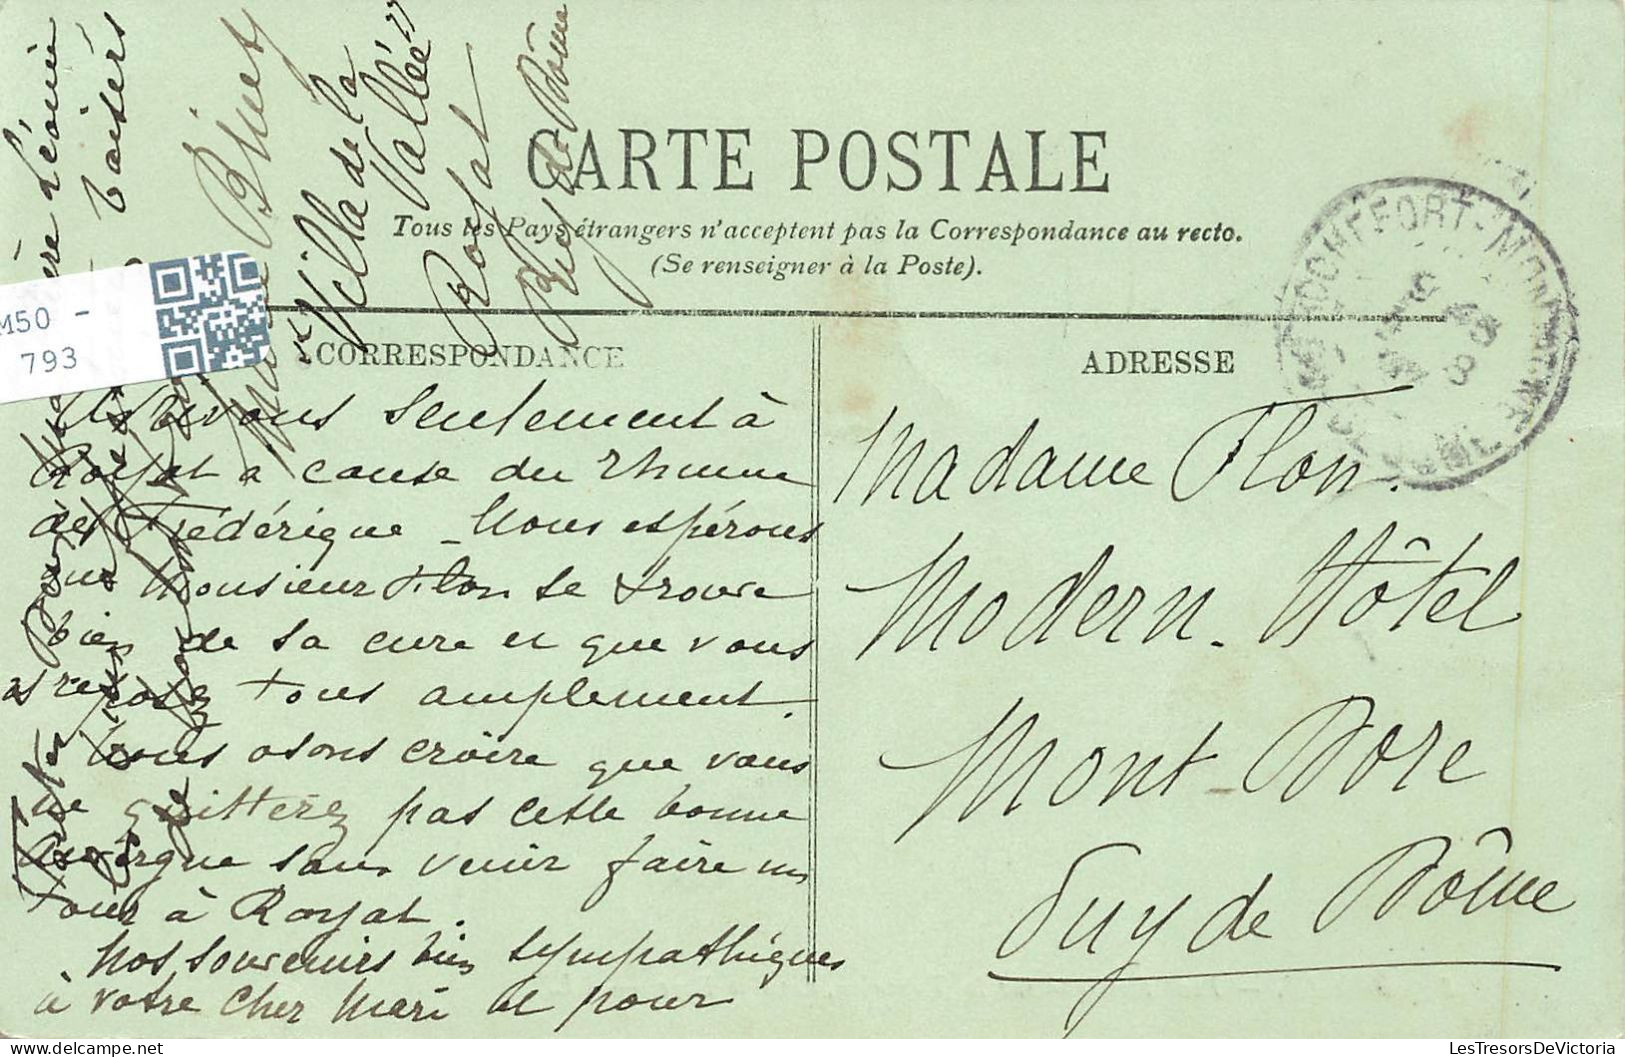 CARTE POSTALE
Tous les Pays étrangers n'acceptent pas la Correspondance au recto.
(Se renseigner à la Poste).
CORRESPONDANCE
ADRESSE
M50 -
793
ROCHEFORT-MONTAGNE
PUY DE DOME
Binet
"Villa de la
Vallée"
Royat
Puy de Dôme
Léonie
baisers
seulement à
Royat a cause du rhume
de Frédérique _ Nous espérons
que Monsieur Flon se trouve
bien de sa cure et que vous
vs reposez tous amplement.
Nous osons croire que vous
ne quitterez pas cette bonne
Auvergne sans venir faire un
tour à Royat.
Nos souvenirs bien sympathiques
à votre cher Mari et pour
Madame Flon.
Modern-Hôtel
Mont-Dore
Puy de Dôme
LesTresorsDeVictoria